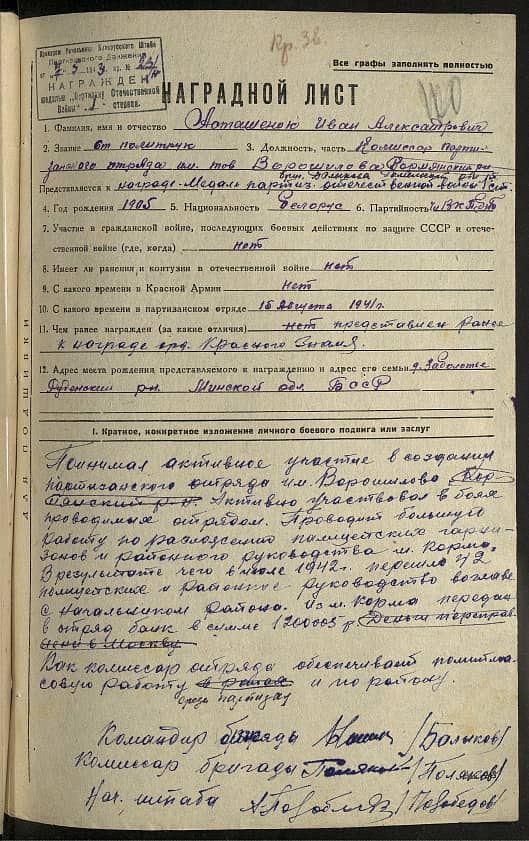 Кр. Зв.
Приказом Начальника Белорусского Штаба
Партизанского Движения
НАГРАЖДЕН
медалью „Партизану Отечественной
Войны" 1 степени.
Все графы заполнять полностью
НАГРАДНОЙ ЛИСТ
1. Фамилия, имя и отчество Иван Александрович
2. Звание ст политрук 3. Должность, часть Комиссар парти-
занского отряда им. тов Ворошилова
Представляется к награде-Медаль партиз. отечественной войны I ст.
4. Год рождения 1905 5. Национальность Белорус 6. Партийность чл ВКП(б)
7. Участие в гражданской войне, последующих боевых действиях по защите СССР и отече-
ственной войне (где, когда) нет
8. Имеет ли ранения и контузии в отечественной войне нет
9. С какого времени в Красной Армии нет
10. С какого времени в партизанском отряде 15 Августа 1941 г.
11. Чем ранее награжден (за какие отличия) нет представлен ранее
к награде орд. Красного Знамя.
12. Адрес места рождения представляемого к награждению и адрес его семьи д. Заболотье
Руденский рн. Минской обл. БССР
ДЛЯ ПОДШИВКИ
I. Краткое, конкретное изложение личного боевого подвига или заслуг
Принимал активное участие в создании
партизанского отряда им. Ворошилова
Активно участвовал в боях
проводимых отрядом. Проводит большую
работу по разложению полицейских гарни-
зонов и районного руководства м. Корма.
В результате чего в июле 1942 г. перешло 72
полицейских и районное руководство во главе
с начальником района. Из м. Корма передан
в отряд банк в сумме р Деньги переправ-
лены в Москву
Как комиссар отряда обеспечивает политмас-
совую работу и по району.
среди партизан
Командир бригады /Балыков/
Комиссар бригады /Поляков/
Нач. штаба /Победов/